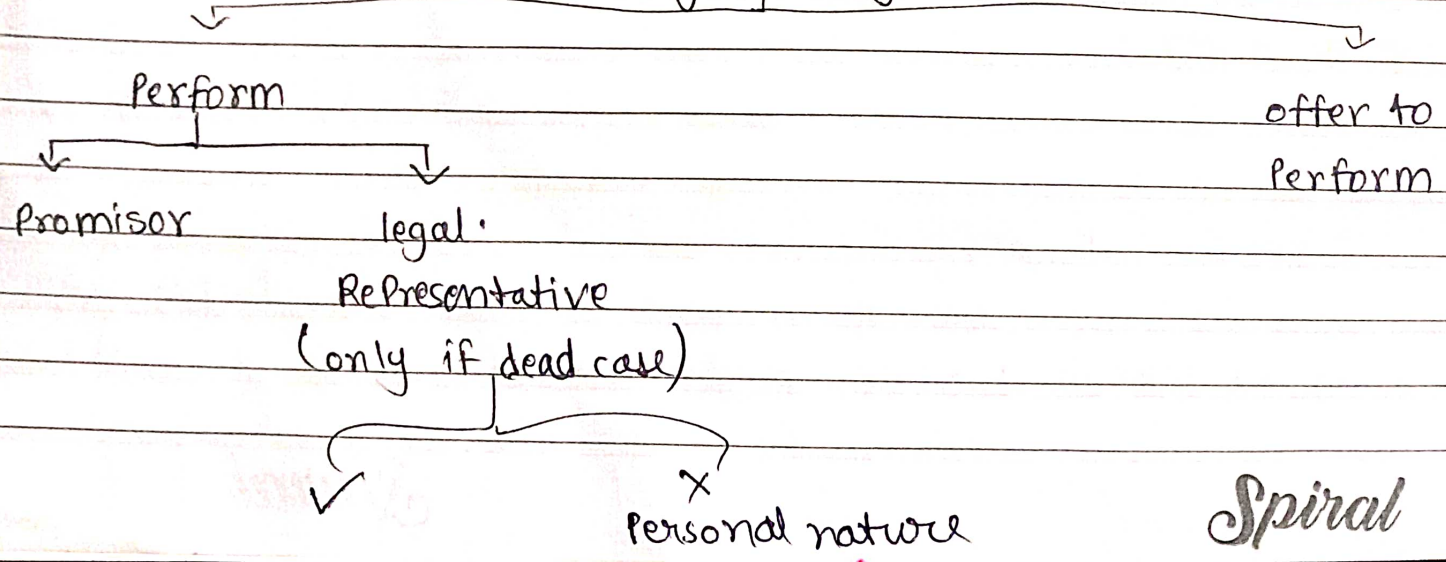 Perform
offer to
Perform
Promisor
legal.
Representative
(only if dead case)
✓
x
Personal nature
Spiral